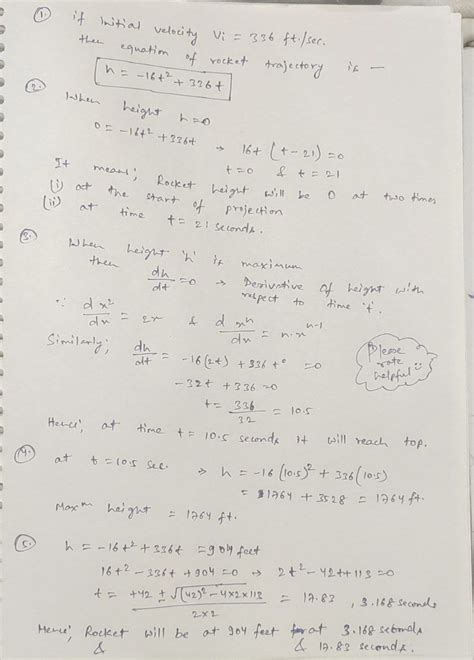 1. if initial velocity Vi = 336 ft./sec.
then equation of rocket trajectory is —
h = -16t² + 336t
2. When height h=0
0 = -16t² + 336t → 16t (t-21) = 0
t=0 & t=21
It means; Rocket height will be 0 at two times
(i) at the start of projection
(ii) at time t= 21 seconds.
3. When height 'h' is maximum
then dh/dt = 0 → Derivative of height with
respect to time 't'.
∵ d x²/dx = 2x & d xⁿ/dx = n·xⁿ⁻¹
Similarly; dh/dt = -16(2t) + 336 t⁰ = 0
-32t + 336 = 0
t = 336/32 = 10.5
Please
rate
helpful ☺
Hence; at time t= 10.5 seconds it will reach top.
4. at t=10.5 sec. → h = -16(10.5)² + 336(10.5)
= -1764 + 3528 = 1764 ft.
Maxᵐ height = 1764 ft.
5. h = -16t² + 336t = 904 feet
16t² - 336t + 904 = 0 → 2t² - 42t + 113 = 0
t = +42 ± √((42)² - 4×2×113) / 2×2 = 17.83, 3.168 seconds
Hence; Rocket will be at 904 feet at 3.168 seconds
& & 17.83 seconds.